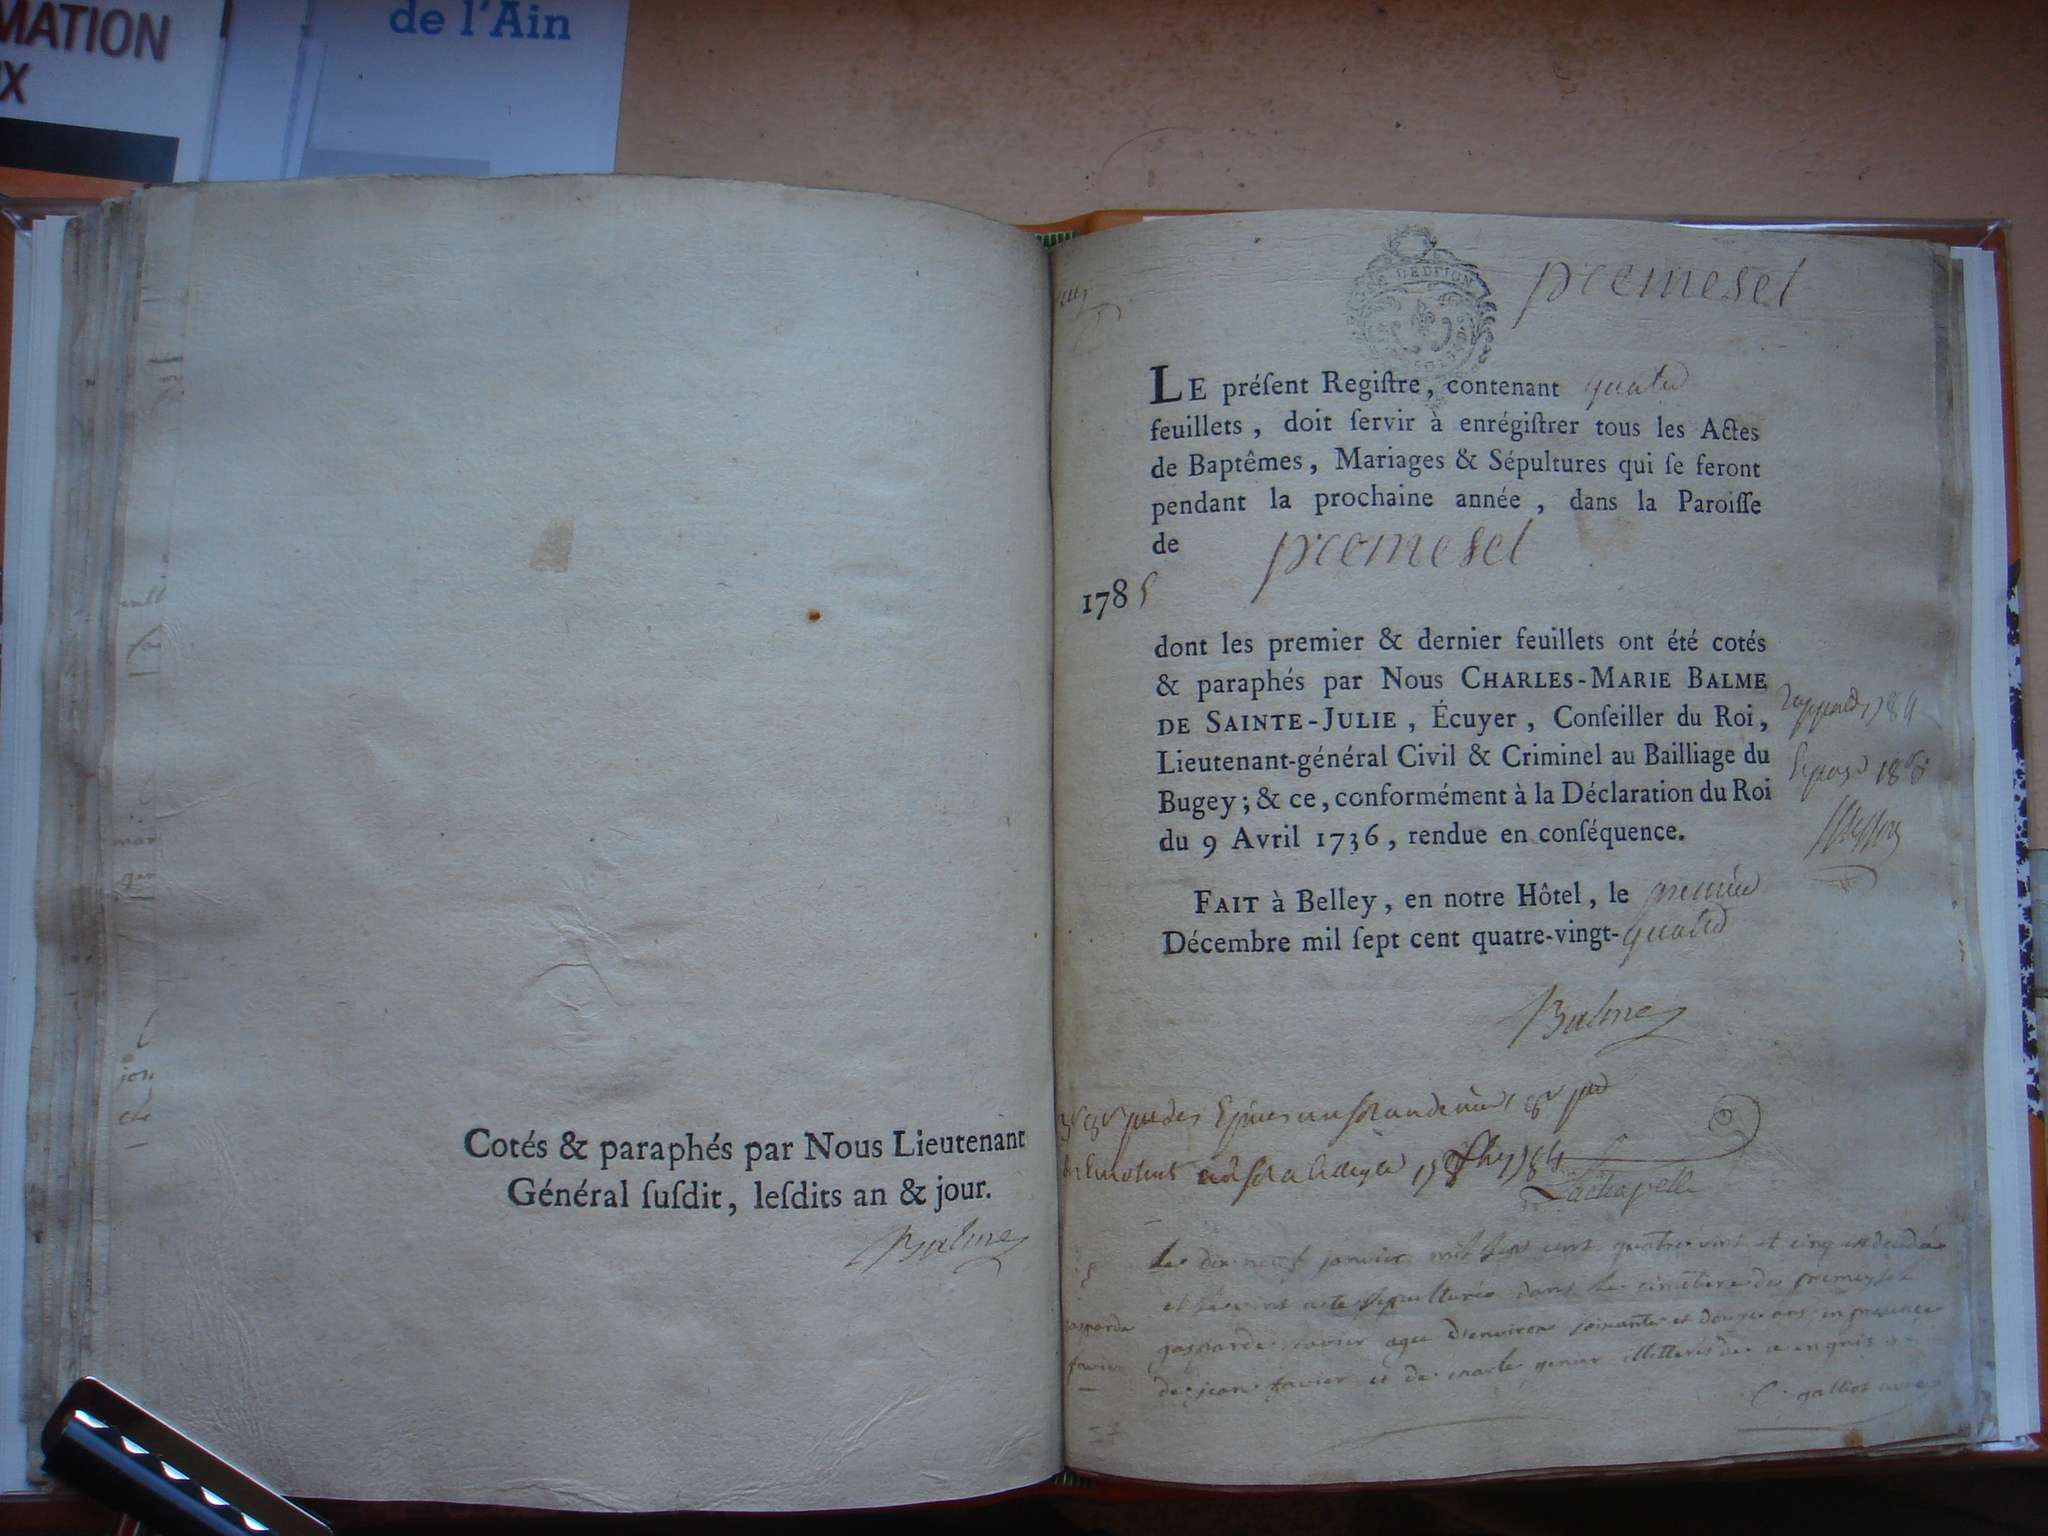 MATION
X
de l'Ain
Cotés & paraphés par Nous Lieutenant
Général ſuſdit, leſdits an & jour.
Balme
premesel
LE préſent Regiſtre, contenant quatre
feuillets, doit ſervir à enrégiſtrer tous les Actes
de Baptêmes, Mariages & Sépultures qui ſe feront
pendant la prochaine année, dans la Paroiſſe
de premesel
1785
dont les premier & dernier feuillets ont été cotés
& paraphés par Nous CHARLES-MARIE BALME
DE SAINTE-JULIE, Écuyer, Conſeiller du Roi,
Lieutenant-général Civil & Criminel au Bailliage du
Bugey; & ce, conformément à la Déclaration du Roi
du 9 Avril 1736, rendue en conſéquence.
FAIT à Belley, en notre Hôtel, le premier
Décembre mil ſept cent quatre-vingt-quatre
Balme
1784
Lachapelle
Le dix neuf janvier mil sept cent quatre vint et cinq est decedée
et sepulturée dans le cimetiere de premeysel
gasparde favier agee d'environ soixante et douze ans en presence
de jean favier et de charle genier illitterés de ce enquis
galliot curé
gasparde
favier